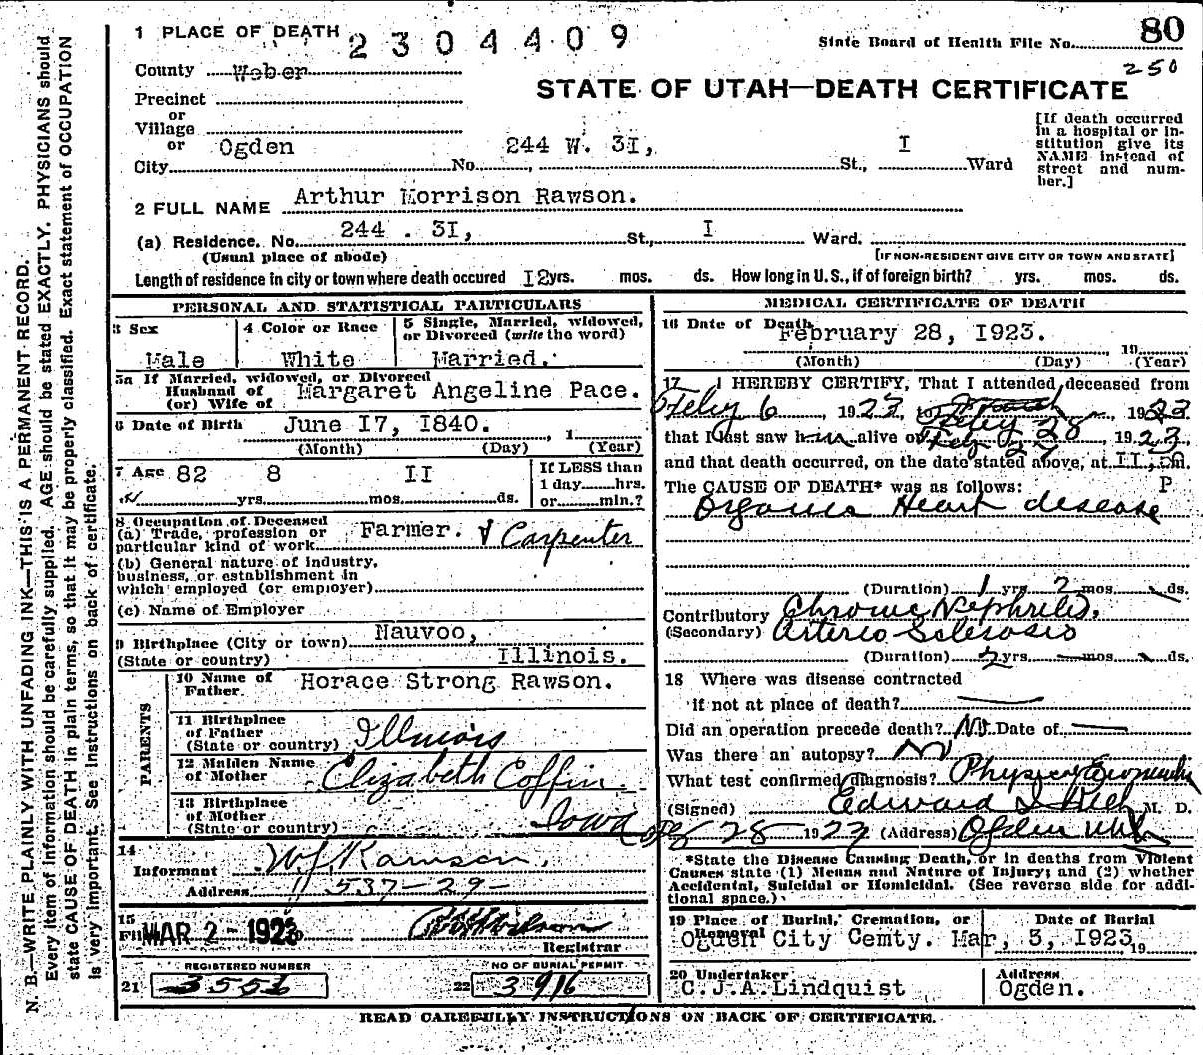 1 PLACE OF DEATH 2304409
State Board of Health File No. 80
250
County Weber
STATE OF UTAH—DEATH CERTIFICATE
Precinct
or
Village
or
City Ogden No. 244 W. 3I, St., I Ward
[If death occurred
in a hospital or in-
stitution give its
NAME instead of
street and num-
ber.]
2 FULL NAME Arthur Morrison Rawson.
(a) Residence. No. 244 . 3I, St., I Ward.
(Usual place of abode) [IF NON-RESIDENT GIVE CITY OR TOWN AND STATE]
Length of residence in city or town where death occured I2 yrs. mos. ds. How long in U. S., if of foreign birth? yrs. mos. ds.
PERSONAL AND STATISTICAL PARTICULARS
3 Sex Male
4 Color or Race White
5 Single, Married, widowed,
or Divorced (write the word)
Married.
5a If Married, widowed, or Divorced
Husband of
(or) Wife of Margaret Angeline Pace.
6 Date of Birth June I7, I840. , 1
(Month) (Day) (Year)
7 Age 82 yrs. 8 mos. II ds.
If LESS than
1 day hrs.
or min.?
8 Occupation of Deceased
(a) Trade, profession or
particular kind of work Farmer. & Carpenter
(b) General nature of industry,
business, or establishment in
which employed (or employer)
(c) Name of Employer
9 Birthplace (City or town) Nauvoo,
(State or country) Illinois.
PARENTS
10 Name of
Father. Horace Strong Rawson.
11 Birthplace
of Father
(State or country) Illinois
12 Maiden Name
of Mother Elizabeth Coffin.
13 Birthplace
of Mother
(State or country) Iowa
14
Informant
Address 537-29-
15
Filed MAR 2-1923
Registrar
REGISTERED NUMBER NO OF BURIAL PERMIT
21 3551 22 3916
MEDICAL CERTIFICATE OF DEATH
16 Date of Death February 28, I923. 19
(Month) (Day) (Year)
17 I HEREBY CERTIFY, That I attended deceased from
Feby 6, 1923, to Feby 28, 1923
that I last saw him alive on Feby 27, 1923,
and that death occurred, on the date stated above, at II,50
P
The CAUSE OF DEATH* was as follows:
Organic Heart disease
(Duration) 1 yrs 2 mos. ds.
Contributory Chronic Nephritis,
(Secondary) Arterio Sclerosis
(Duration) 2 yrs mos ds.
18 Where was disease contracted
if not at place of death?
Did an operation precede death? No Date of
Was there an autopsy? No
What test confirmed diagnosis?
(Signed) Edward I M. D.
28 1923 (Address) Ogden Utah
*State the Disease Causing Death, or in deaths from Violent
Causes state (1) Means and Nature of Injury; and (2) whether
Accidental, Suicidal or Homicidal. (See reverse side for addi-
tional space.)
19 Place of Burial, Cremation, or
Removal
Ogden City Cemty.
Date of Burial
Mar, 3, I923 19
20 Undertaker
C.J.A.Lindquist
Address
Ogden.
READ CAREFULLY INSTRUCTIONS ON BACK OF CERTIFICATE.
N. B.—WRITE PLAINLY WITH UNFADING INK—THIS IS A PERMANENT RECORD.
Every item of information should be carefully supplied. AGE should be stated EXACTLY. PHYSICIANS should
state CAUSE OF DEATH in plain terms, so that it may be properly classified. Exact statement of OCCUPATION
is very important. See Instructions on back of certificate.